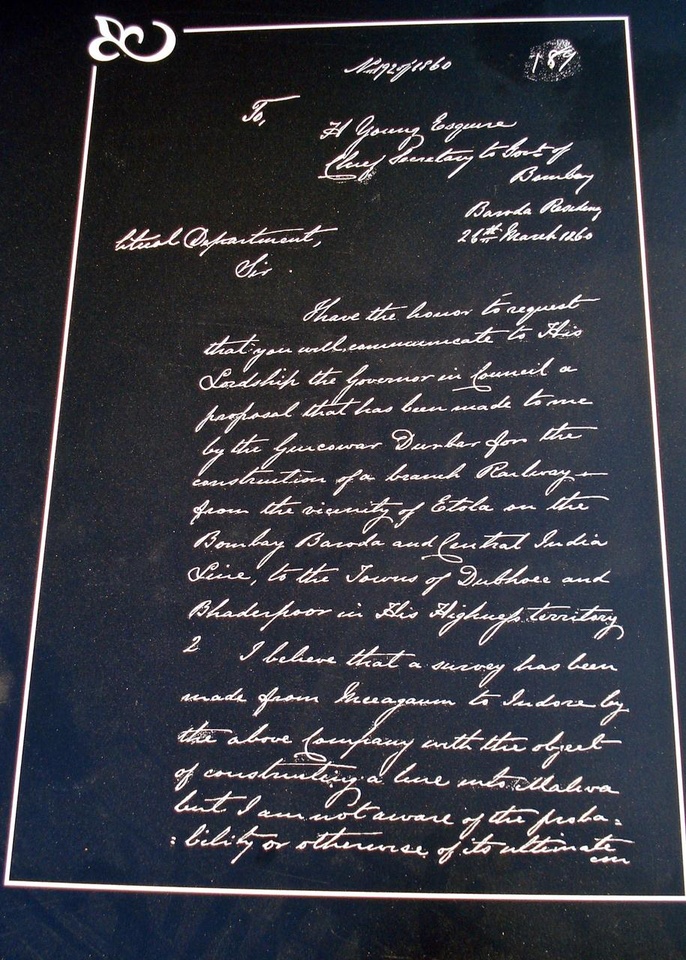 No 92 of 1860
189
To,
H Young Esquire
Chief Secretary to Govt of
Bombay
Baroda Residency
26th March 1860
litical Department,
Sir.
I have the honor to request
that you will communicate to His
Lordship the Governor in Council a
proposal that has been made to me
by the Guicowar Durbar for the
construction of a branch Railway
from the vicinity of Etola on the
Bombay Baroda and Central India
Line, to the Towns of Dubhoee and
Bhaderpoor in His Highness territory
2 I believe that a survey has been
made from Meeagaum to Indore by
the above Company with the object
of constructing a line into Malwa
but I am not aware of the proba=
=bility or otherwise of its ultimate